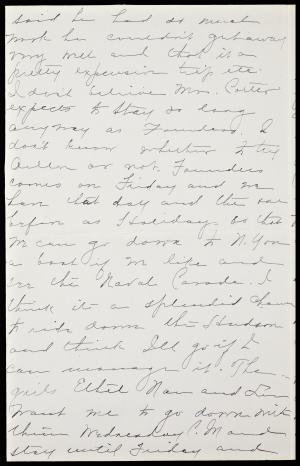 said he had so much
work he couldn't get away
very well and that it's a
pretty expensive trip etc.
I don't believe Mrs. Carter
expects to stay so long
anyway as Founders. I
don't know whether to try
or not. Founders
comes on Friday and we
have that day and the one
before as Holiday so that
we can go down to N. York
a boat if we like and
see the Naval Parade. I
think it's a splendid chance
to ride down the Hudson
and think I'll go if I
can manage it. The
girls Ethel Nan and
want me to go down with
them Wednesday P.M and
stay until Friday and